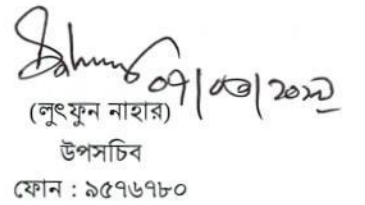 ০৭/০৩/২০২২
(লুৎফুন নাহার)
উপসচিব
ফোন : ৯৫৭৬৭৮০